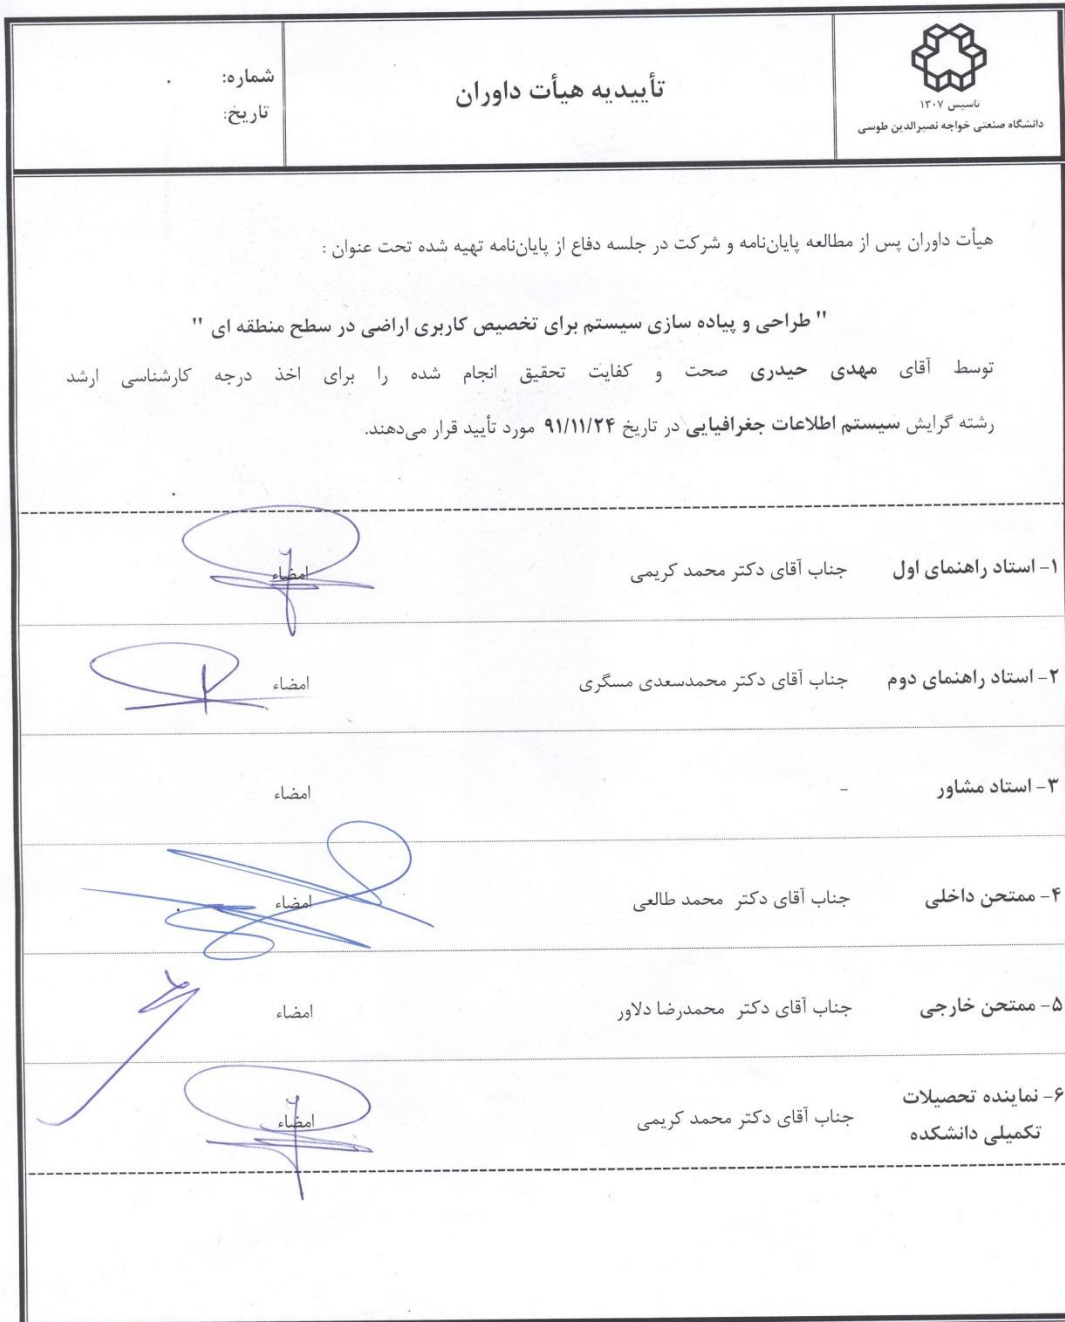 تاسیس ۱۳۰۷
دانشگاه صنعتی خواجه نصیرالدین طوسی
تأییدیه هیأت داوران
شماره:
تاریخ:
هیأت داوران پس از مطالعه پایان‌نامه و شرکت در جلسه دفاع از پایان‌نامه تهیه شده تحت عنوان :
" طراحی و پیاده سازی سیستم برای تخصیص کاربری اراضی در سطح منطقه ای "
توسط آقای مهدی حیدری صحت و کفایت تحقیق انجام شده را برای اخذ درجه کارشناسی ارشد
رشته گرایش سیستم اطلاعات جغرافیایی در تاریخ ۹۱/۱۱/۲۴ مورد تأیید قرار می‌دهند.
۱- استاد راهنمای اول جناب آقای دکتر محمد کریمی امضاء
۲- استاد راهنمای دوم جناب آقای دکتر محمدسعدی مسگری امضاء
۳- استاد مشاور - امضاء
۴- ممتحن داخلی جناب آقای دکتر محمد طالعی امضاء
۵- ممتحن خارجی جناب آقای دکتر محمدرضا دلاور امضاء
۶- نماینده تحصیلات
تکمیلی دانشکده جناب آقای دکتر محمد کریمی امضاء